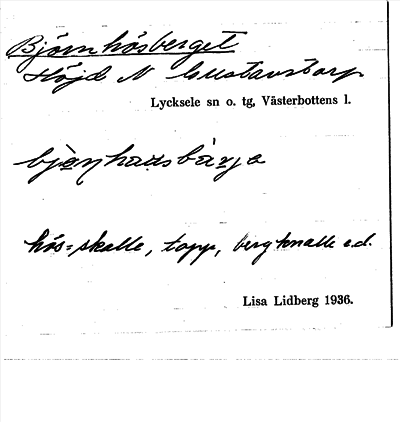 Björnhösberget
Höjd N Gustavstorp
Lycksele sn o. tg, Västerbottens l.
hös = skalle, topp, bergknalle e.d.
Lisa Lidberg 1936.